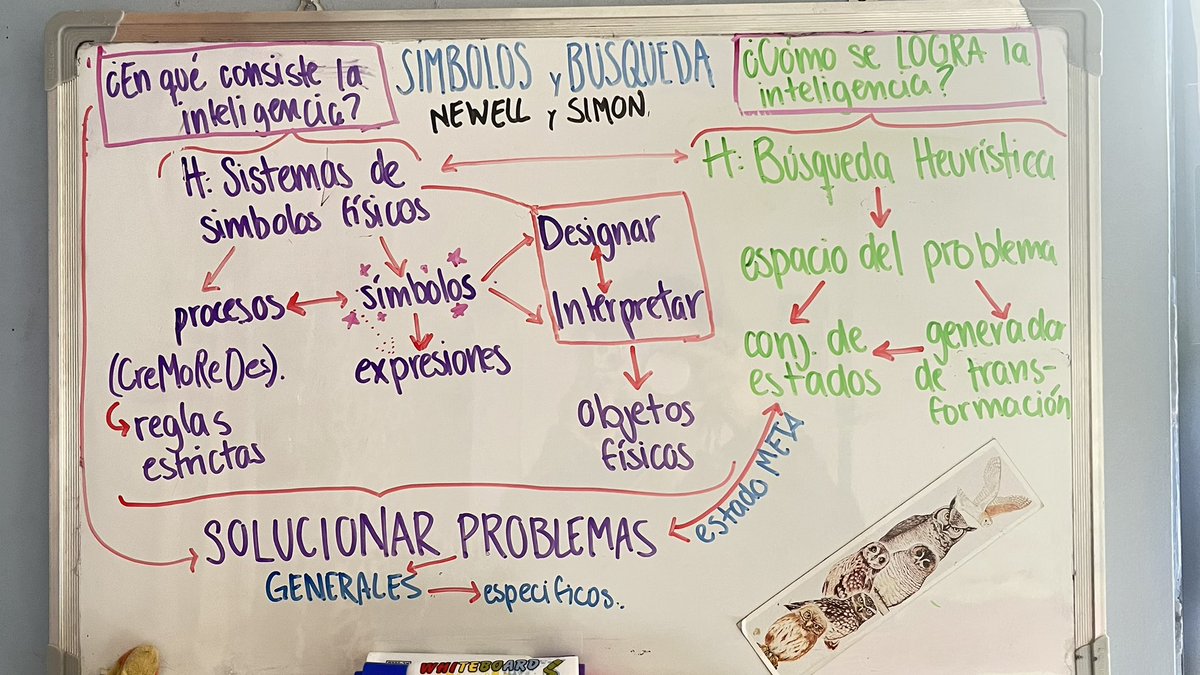 ¿En qué consiste la
inteligencia?
SÍMBOLOS y BÚSQUEDA
NEWELL y SIMON.
¿Cómo se LOGRA la
inteligencia?
H: Sistemas de
simbolos físicos
procesos
símbolos
(CreMoReDes).
reglas
estrictas
expresiones
Designar
Interpretar
Objetos
físicos
H: Búsqueda Heurística
espacio del problema
conj. de
estados
generador
de trans-
formación
estado META
SOLUCIONAR PROBLEMAS
GENERALES
especificos.
WHITEBOARD